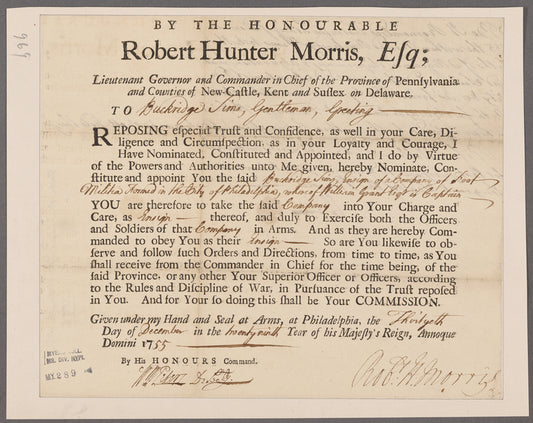 969
BY THE HONOURABLE
Robert Hunter Morris, Esq;
Lieutenant Governor and Commander in Chief of the Province of Pennsylvania
and Counties of New-Castle, Kent and Sussex on Delaware.
TO Buckridge Sims, Gentleman, Greeting
REPOSING especial Trust and Confidence, as well in your Care, Di-
ligence and Circumspection, as in your Loyalty and Courage, I
Have Nominated, Constituted and Appointed, and I do by Virtue
of the Powers and Authorities unto Me given, hereby Nominate, Con-
stitute and appoint You the said Buckridge Sims, Ensign of a Company of Foot
Militia Formed in the City of Philadelphia, whereof William Grant Esqr is Captain
YOU are therefore to take the said Company into Your Charge and
Care, as Ensign thereof, and duly to Exercise both the Officers
and Soldiers of that Company in Arms. And as they are hereby Com-
manded to obey You as their Ensign So are You likewise to ob-
serve and follow such Orders and Directions, from time to time, as You
shall receive from the Commander in Chief for the time being, of the
said Province, or any other Your Superior Officer or Officers, according
to the Rules and Discipline of War, in Pursuance of the Trust reposed
in You. And for Your so doing this shall be Your COMMISSION.
Given under my Hand and Seal at Arms, at Philadelphia, the Thirtyeth
Day of December in the twenty ninth Year of his Majesty's Reign, Annoque
Domini 1755
By His HONOURS Command.
MYERS COLL.
MS. DIV. NYPL
MY. 289
Robt H Morris